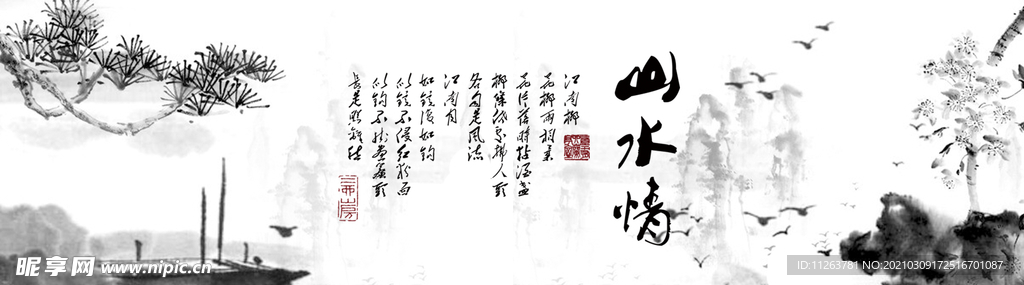 山水情
江南柳
花柳两相柔
花片落时黏酒盏
柳条低处拂人头
各自是风流
江南月
如镜复如钩
似镜不侵红粉面
似钩不挂画帘头
长是照离愁
昵享网 www.nipic.cn
ID:11263781 NO:20210309172516701087